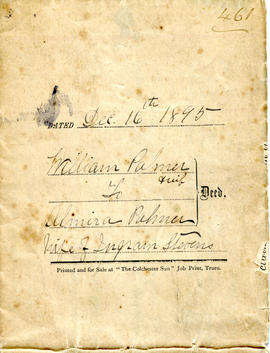 461
DATED Dec. 16th 1895
William Palmer
To
Deed.
Almira Palmer
Wife of Ingram Stevens
Printed and for Sale at "The Colchester Sun" Job Print, Truro.